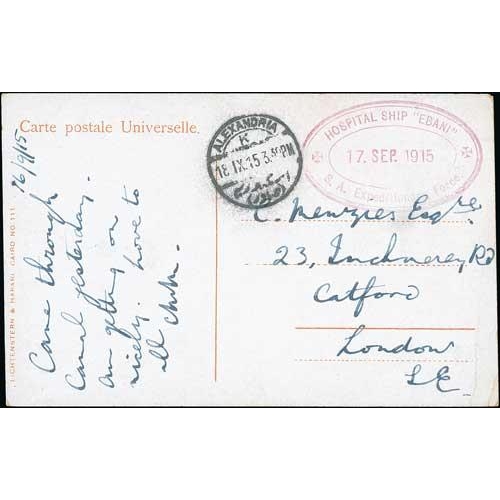 Carte postale Universelle.
ALEXANDRIA
K
18.IX.15 3.30PM
HOSPITAL SHIP "EBANI"
17. SEP. 1915
S. A. Expeditionary Force
16/9/15
Came through
Canal yesterday.
Am getting on
nicely. Love to
all
C. Menzies Esqre
23, Inchmery Rd
Catford
London
S.E.
LICHTENSTERN & HARARI, CAIRO NO. 111.